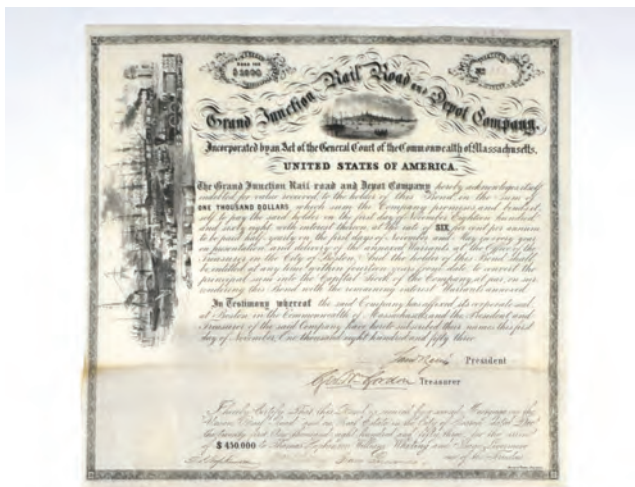 BOND FOR
$1000
No
Grand Junction Rail Road and Depot Company.
Incorporated by an Act of the General Court of the Commonwealth of Massachusetts,
UNITED STATES OF AMERICA.
The Grand Junction Rail road and Depot Company hereby acknowledges itself
indebted for value received to the holder of this Bond in the sum of
ONE THOUSAND DOLLARS which sum the Company promises and binds it
self to pay the said holder on the first day of November Eighteen hundred
and sixty eight with interest thereon, at the rate of SIX per cent per annum
to be paid half yearly on the first days of November and May in every year
on presentation and delivery of the annexed Warrants, at the Office of the
Treasurer in the City of Boston. And the holder of this Bond shall
be entitled at any time within fourteen years from date to convert the
principal sum into the Capital Stock of the Company at par, on sur
rendering this Bond with the unearned interest Warrants annexed.
In Testimony whereof the said Company has affixed its corporate seal
at Boston in the Commonwealth of Massachusetts and the President and
Treasurer of the said Company have hereto subscribed their names this first
day of November, One thousand eight hundred and fifty three
President
Gordon Treasurer
I hereby Certify that this Bond is secured by a
and on Real Estate in the City of Boston dated
one thousand eight hundred and fifty three for the sum
$ 450.000 to Thomas Hopkinson William Whiting and